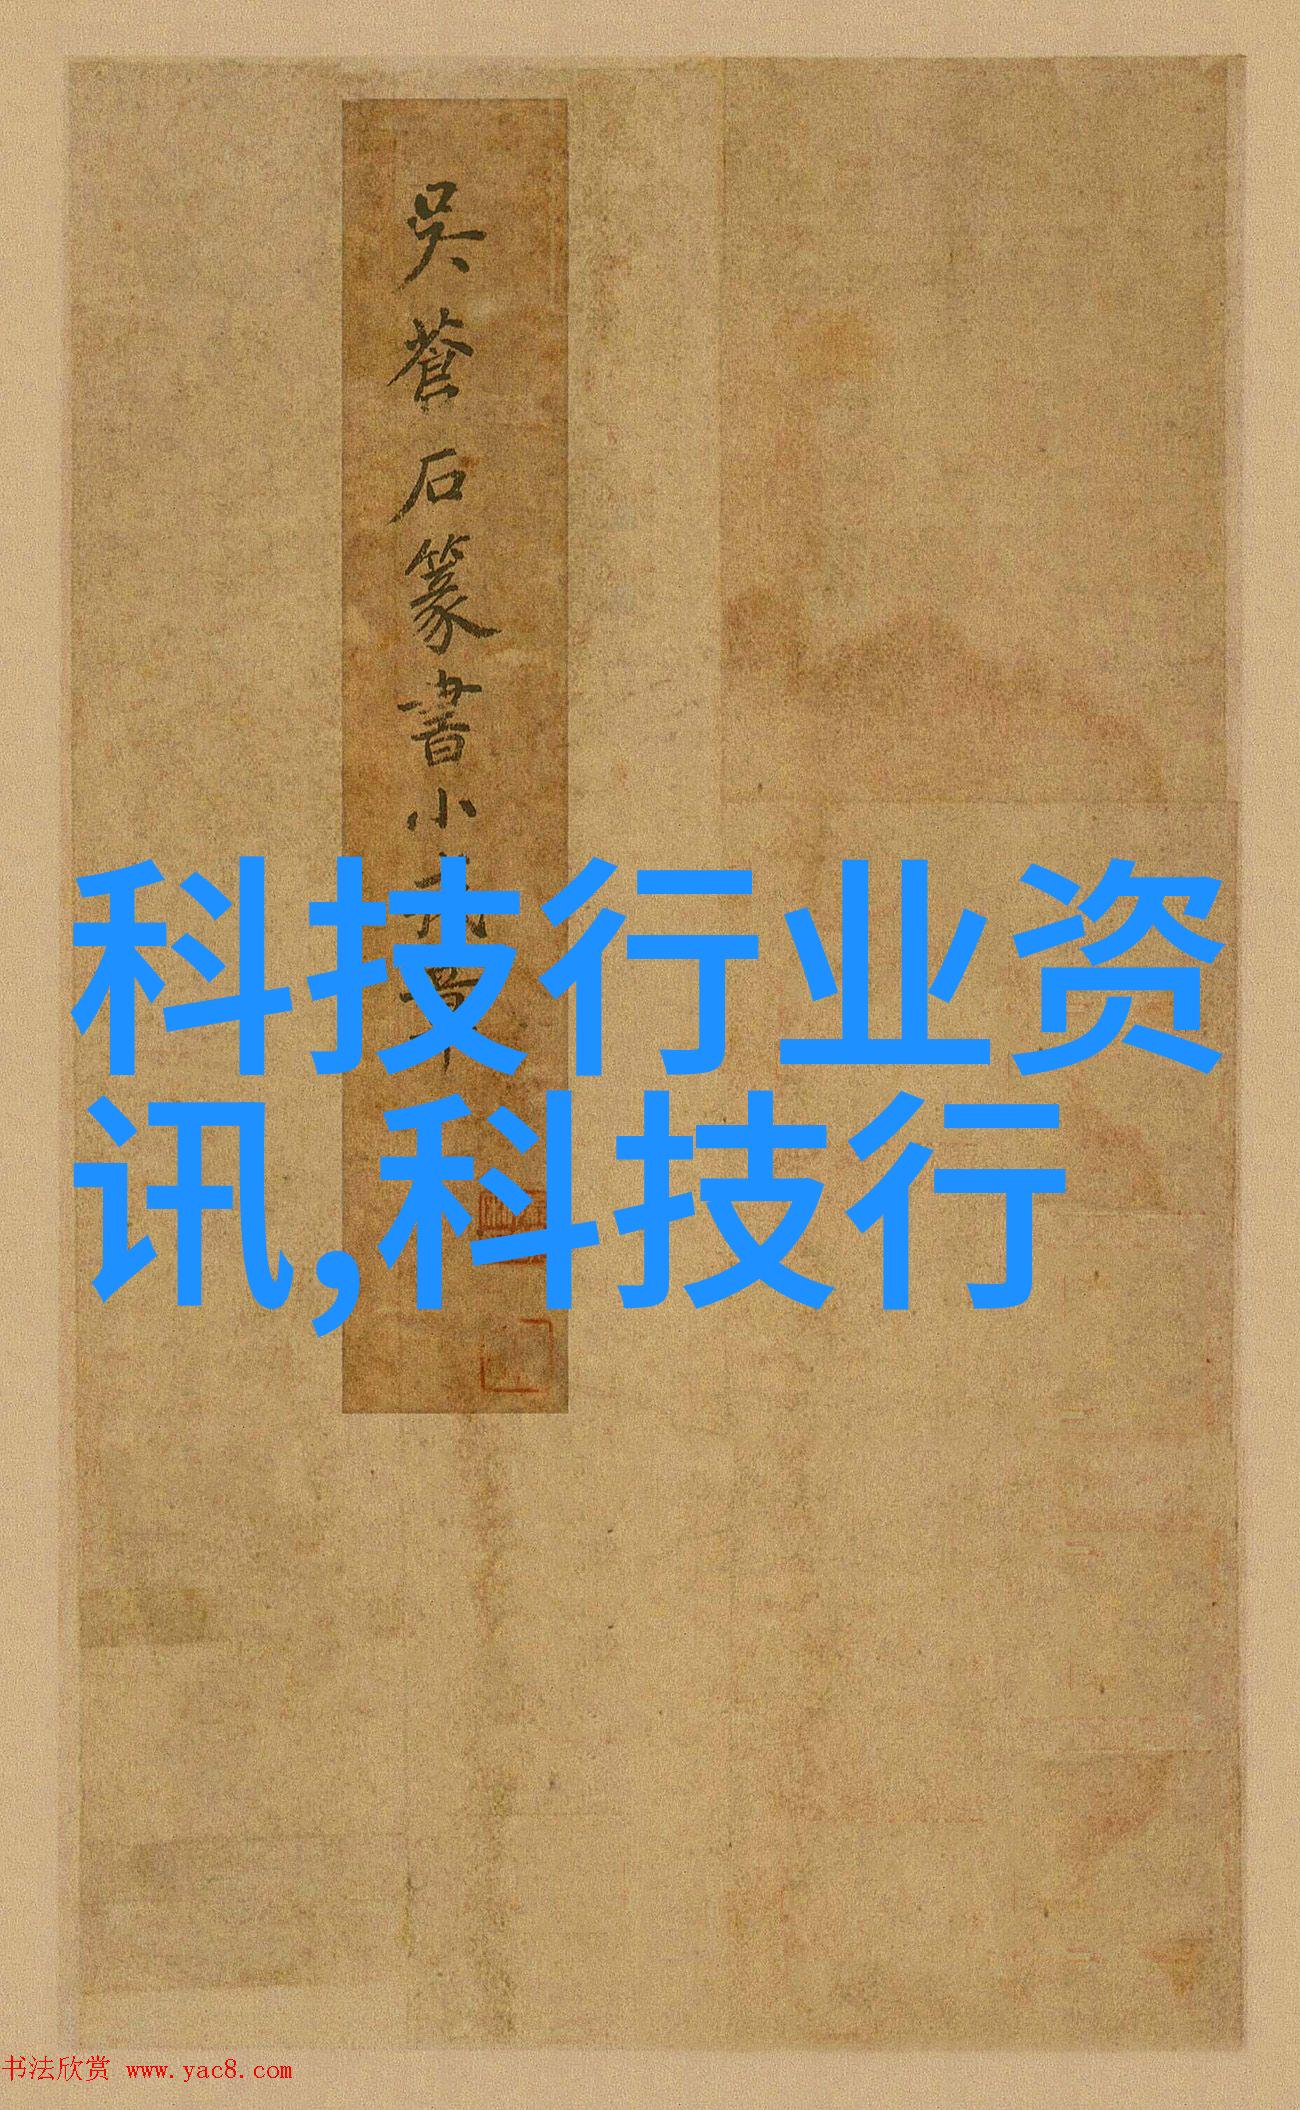 吳蒼石篆書小戎章
科技行业资
讯,科技行
书法欣赏 www.yac8.com